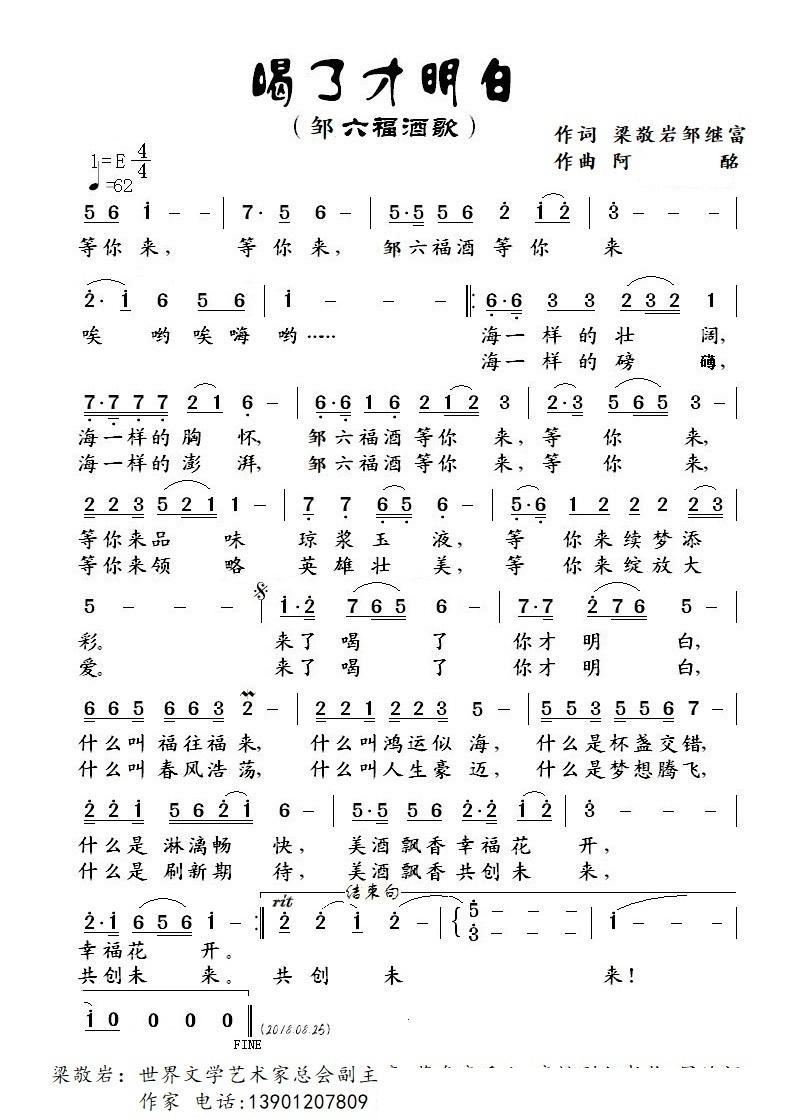 喝了才明白
（邹六福酒歌）
作词 梁敬岩邹继富
作曲 阿 酩
1=E 4/4
♩=62
5 6 i - - | 7· 5 6 - | 5·5 5 6 2 i 2 | 3 - - |
等你 来， 等你 来， 邹六福酒 等你 来
2·i 6 5 6 | i - - - ‖: 6·6 3 3 2 3 2 1 |
唉 哟唉嗨哟…… 海一样的壮 阔，
海一样的磅 礴，
7·7 7 7 2 1 6 - | 6·6 1 6 2 1 2 3 | 2·3 5 6 5 - |
海一样的胸 怀， 邹六福酒等你 来，等 你 来，
海一样的澎 湃， 邹六福酒等你 来，等 你 来，
2 2 3 5 2 1 1 - | 7 7 6 5 | 5·6 1 2 2 2 2 |
等你来品 味 琼浆玉 液， 等 你来续梦添
等你来领 略 英雄壮 美， 等 你来绽放大
5 - - - | i·2 7 6 5 6 - | 7·7 2 7 6 5 - |
彩。 来了喝 了 你才明 白，
爱。 来了喝 了 你才明 白，
6 6 5 6 6 3 2 - | 2 2 1 2 2 3 5 - | 5 5 3 5 5 6 7 - |
什么叫 福往福来， 什么叫鸿运似海， 什么是杯盏交错，
什么叫 春风浩荡， 什么叫人生豪迈， 什么是梦想腾飞，
2 2 i 5 6 2 i 6 - | 5·5 5 6 2·2 i 2 | 3 - - |
什么是 淋漓畅 快， 美酒飘香幸福花 开，
什么是 刷新期 待， 美酒飘香共创未 来，
rit 结束句
2·i 6 5 6 i - :‖ 2 2 i 2 - | { 5 - - 3 - - | i - - |
幸福花 开。
共创未 来。 共 创 未 来！
i 0 0 0 0 ‖ (2018.08.25)
FINE
梁敬岩：世界文学艺术家总会副主
作家 电话:13901207809